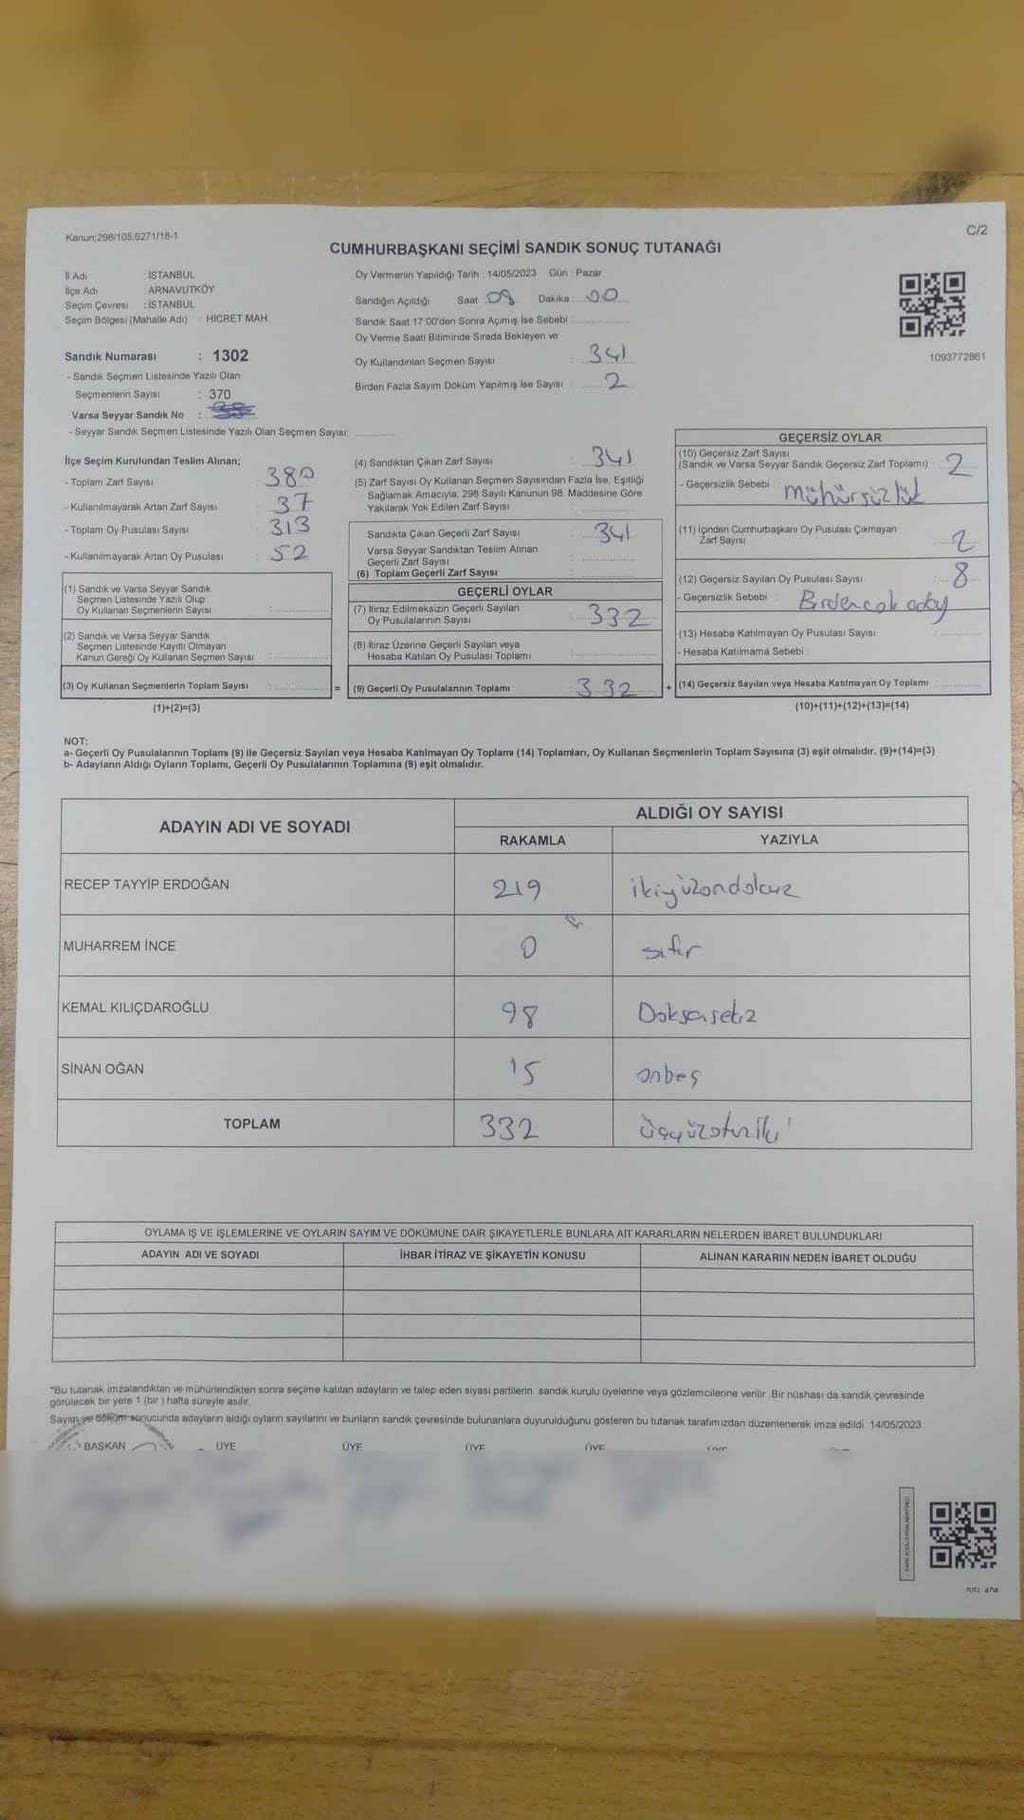 Kanun;298/105,6271/18-1
C/2
CUMHURBAŞKANI SEÇİMİ SANDIK SONUÇ TUTANAĞI
İl Adı : İSTANBUL
İlçe Adı : ARNAVUTKÖY
Seçim Çevresi : İSTANBUL
Seçim Bölgesi (Mahalle Adı) : HİCRET MAH.
Sandık Numarası : 1302
- Sandık Seçmen Listesinde Yazılı Olan
Seçmenlerin Sayısı : 370
Varsa Seyyar Sandık No :
- Seyyar Sandık Seçmen Listesinde Yazılı Olan Seçmen Sayısı:
Oy Vermenin Yapıldığı Tarih : 14/05/2023 Gün : Pazar
Sandığın Açıldığı Saat 08 Dakika : 00
Sandık Saat 17:00'den Sonra Açımış İse Sebebi :
Oy Verme Saati Bitiminde Sırada Bekleyen ve
Oy Kullandırılan Seçmen Sayısı : 341
Birden Fazla Sayım Döküm Yapılmış İse Sayısı : 2
1093772861
İlçe Seçim Kurulundan Teslim Alınan;
- Toplam Zarf Sayısı : 380
- Kullanılmayarak Artan Zarf Sayısı : 37
- Toplam Oy Pusulası Sayısı : 313
- Kullanılmayarak Artan Oy Pusulası : 52
(1) Sandık ve Varsa Seyyar Sandık
Seçmen Listesinde Yazılı Olup
Oy Kullanan Seçmenlerin Sayısı :
(2) Sandık ve Varsa Seyyar Sandık
Seçmen Listesinde Kayıtlı Olmayan
Kanun Gereği Oy Kullanan Seçmen Sayısı :
(3) Oy Kullanan Seçmenlerin Toplam Sayısı :
(1)+(2)=(3)
(4) Sandıktan Çıkan Zarf Sayısı : 341
(5) Zarf Sayısı Oy Kullanan Seçmen Sayısından Fazla İse, Eşitliği
Sağlamak Amacıyla; 298 Sayılı Kanunun 98. Maddesine Göre
Yakılarak Yok Edilen Zarf Sayısı :
Sandıkta Çıkan Geçerli Zarf Sayısı : 341
Varsa Seyyar Sandıktan Teslim Alınan
Geçerli Zarf Sayısı :
(6) Toplam Geçerli Zarf Sayısı :
GEÇERLİ OYLAR
(7) İtiraz Edilmeksizin Geçerli Sayılan
Oy Pusulalarının Sayısı : 332
(8) İtiraz Üzerine Geçerli Sayılan veya
Hesaba Katılan Oy Pusulası Toplamı :
= (9) Geçerli Oy Pusulalarının Toplamı : 332 +
GEÇERSİZ OYLAR
(10) Geçersiz Zarf Sayısı
(Sandık ve Varsa Seyyar Sandık Geçersiz Zarf Toplamı) : 2
- Geçersizlik Sebebi : mühürsüzlük
(11) İçinden Cumhurbaşkanı Oy Pusulası Çıkmayan
Zarf Sayısı : 2
(12) Geçersiz Sayılan Oy Pusulası Sayısı : 8
- Geçersizlik Sebebi : Birdencok aday
(13) Hesaba Katılmayan Oy Pusulası Sayısı :
- Hesaba Katılmama Sebebi :
(14) Geçersiz Sayılan veya Hesaba Katılmayan Oy Toplamı :
(10)+(11)+(12)+(13)=(14)
NOT:
a- Geçerli Oy Pusulalarının Toplamı (9) ile Geçersiz Sayılan veya Hesaba Katılmayan Oy Toplamı (14) Toplamları, Oy Kullanan Seçmenlerin Toplam Sayısına (3) eşit olmalıdır. (9)+(14)=(3)
b- Adayların Aldığı Oyların Toplamı, Geçerli Oy Pusulalarının Toplamına (9) eşit olmalıdır.
ADAYIN ADI VE SOYADI
ALDIĞI OY SAYISI
RAKAMLA YAZIYLA
RECEP TAYYİP ERDOĞAN 219 ikiyüzondokuz
MUHARREM İNCE 0 sıfır
KEMAL KILIÇDAROĞLU 98 Doksansekiz
SİNAN OĞAN 15 onbeş
TOPLAM 332 üçyüzotuziki
OYLAMA İŞ VE İŞLEMLERİNE VE OYLARIN SAYIM VE DÖKÜMÜNE DAİR ŞİKAYETLERLE BUNLARA AİT KARARLARIN NELERDEN İBARET BULUNDUKLARI
ADAYIN ADI VE SOYADI İHBAR İTİRAZ VE ŞİKAYETİN KONUSU ALINAN KARARIN NEDEN İBARET OLDUĞU
"Bu tutanak imzalandıktan ve mühürlendikten sonra seçime katılan adayların ve talep eden siyasi partilerin sandık kurulu üyelerine veya gözlemcilerine verilir. Bir nüshası da sandık çevresinde
görülecek bir yere 1 (bir ) hafta süreyle asılır.
Sayım ve döküm sonucunda adayların aldığı oyların sayılarını ve bunların sandık çevresinde bulunanlara duyurulduğunu gösteren bu tutanak tarafımızdan düzenlenerek imza edildi. 14/05/2023
BAŞKAN ÜYE ÜYE ÜYE ÜYE